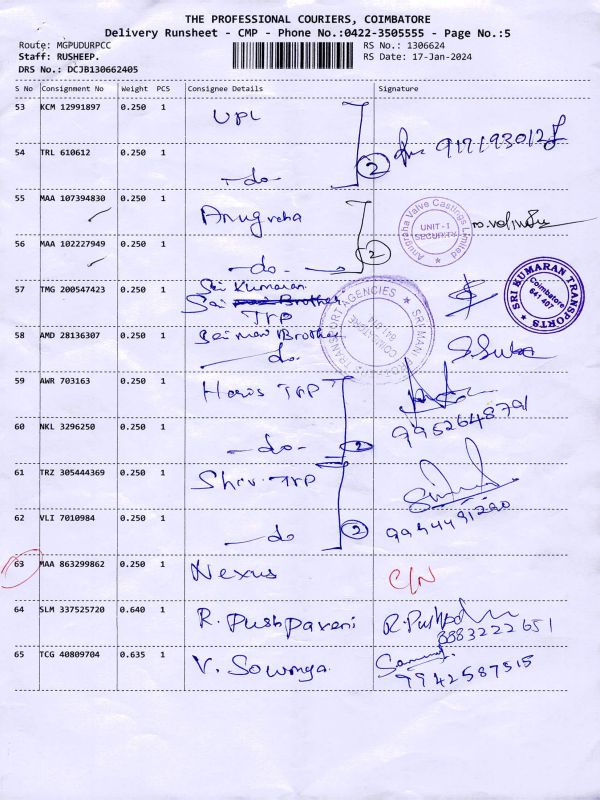 THE PROFESSIONAL COURIERS, COIMBATORE
Delivery Runsheet - CMP - Phone No.:0422-3505555 - Page No.:5
Route: MGPUDURPCC RS No.: 1306624
Staff: RUSHEEP. RS Date: 17-Jan-2024
DRS No.: DCJB130662405
S No Consignment No Weight PCS Consignee Details Signature
53 KCM 12991897 0.250 1 UPL
54 TRL 610612 0.250 1 -do- 2
55 MAA 107394830 0.250 1 Anugraha
Anugraha Valve Castings Limited
UNIT-I
SECURITY
56 MAA 102227949 0.250 1 -do- 2
57 TMG 200547423 0.250 1 Sri Kumaran
TRP
SRI KUMARAN TRANSPORTS
Coimbatore
641 407
58 AMD 28136307 0.250 1 Sai mani Brother
-do-
59 AWR 703163 0.250 1 Haris TRP
9952648791
60 NKL 3296250 0.250 1 -do- 2
61 TRZ 305444369 0.250 1 Shri TRP
62 VLI 7010984 0.250 1 -do 2
9944491290
63 MAA 863299862 0.250 1 Nexus C/N
64 SLM 337525720 0.640 1 R. Pushpaveni R. Pushpa
8883222651
65 TCG 40809704 0.635 1 V. Sowmya
9942587515